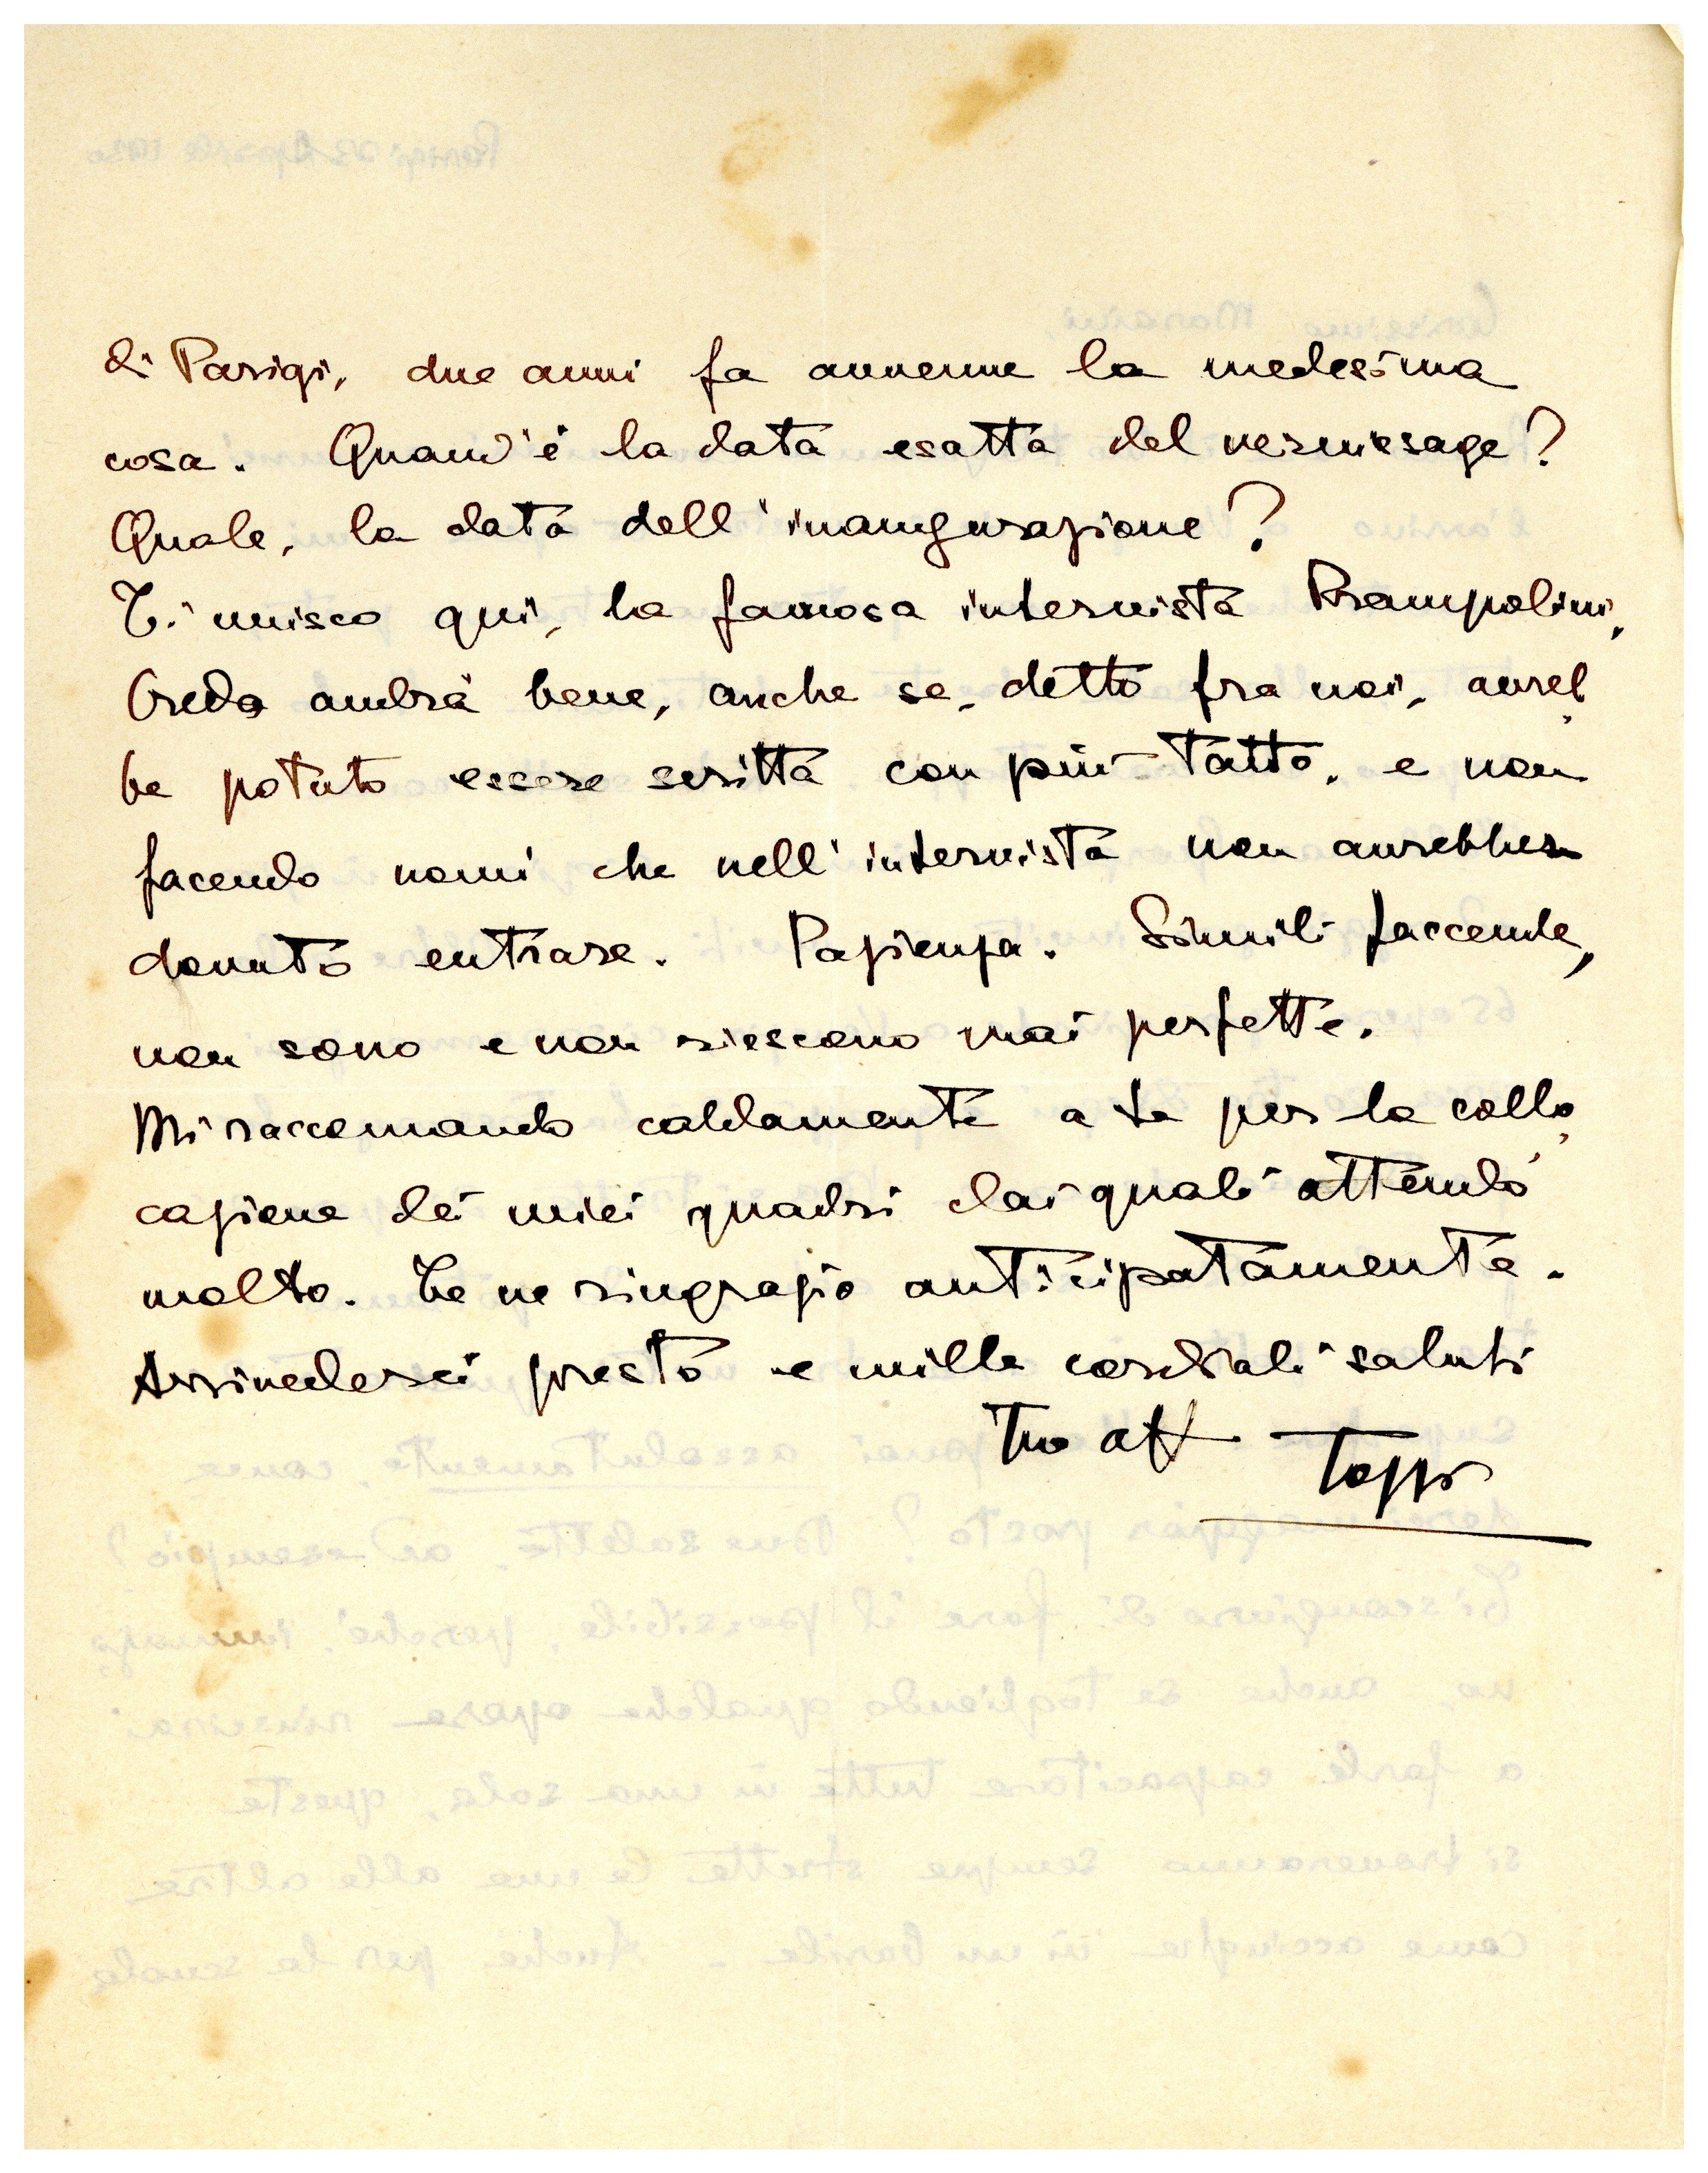 di Parigi, due anni fa avvenne la medesima
cosa. Quand'è la data esatta del vernissage?
Quale, la data dell'inaugurazione?
Ti unisco qui, la famosa intervista Prampolini,
Credo andrà bene, anche se, detto fra noi, avreb
be potuto essere scritta con più tatto, e non
facendo nomi che nell'intervista non avrebbero
dovuto entrare. Pazienza. Simili faccende,
non sono e non riescono mai perfette.
Mi raccomando caldamente a te per la collo
cazione dei miei quadri dai quali attendo
molto. Te ne ringrazio anticipatamente.
Arrivederci presto e mille cordiali saluti
tuo aff